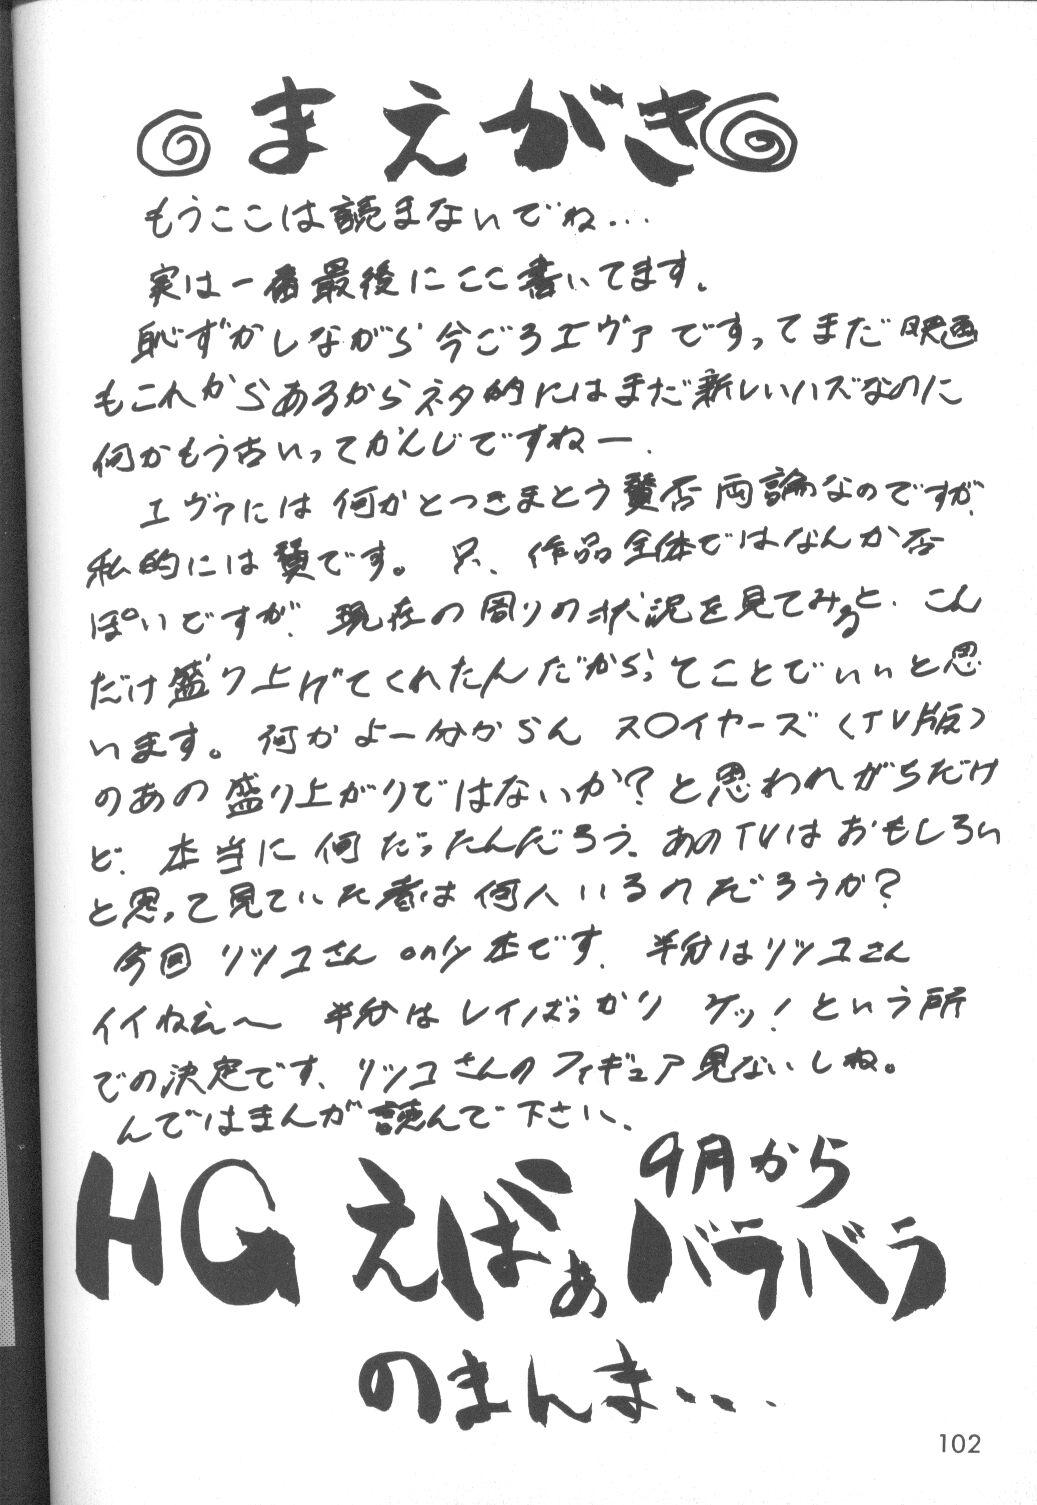 まえがき
もうここは読まないでね…
実は一番最後にここ書いてます。
恥ずかしながら今ごろエヴァですってまだ映画
もこれからあるからネタ的にはまだ新しいハズなのに
何かもう古いってかんじですねー.
エヴァには何かとつきまとう賛否両論なのですが、
私的には賛です。只、作品全体ではなんか否
ぽいですが、現在の周りの状況を見てみると、こん
だけ盛り上げてくれたんだからってことでいいと思
います。何かよー分からん ス〇イヤーズ(TV版)
のあの盛り上がりではないか?と思われがちだけ
ど、本当に何だったんだろう、あのTVはおもしろい
と思って見ていた者は何人いるのだろうか?
今回リツコさんonly本です、半分はリツコさん
イイねえ〜 半分はレイばっかり ケッ!という所
での決定です、リツコさんのフィギュア見ないしね。
んではまんが読んで下さい、
9月から
HG えばぁ バラバラ
のまんま....
102